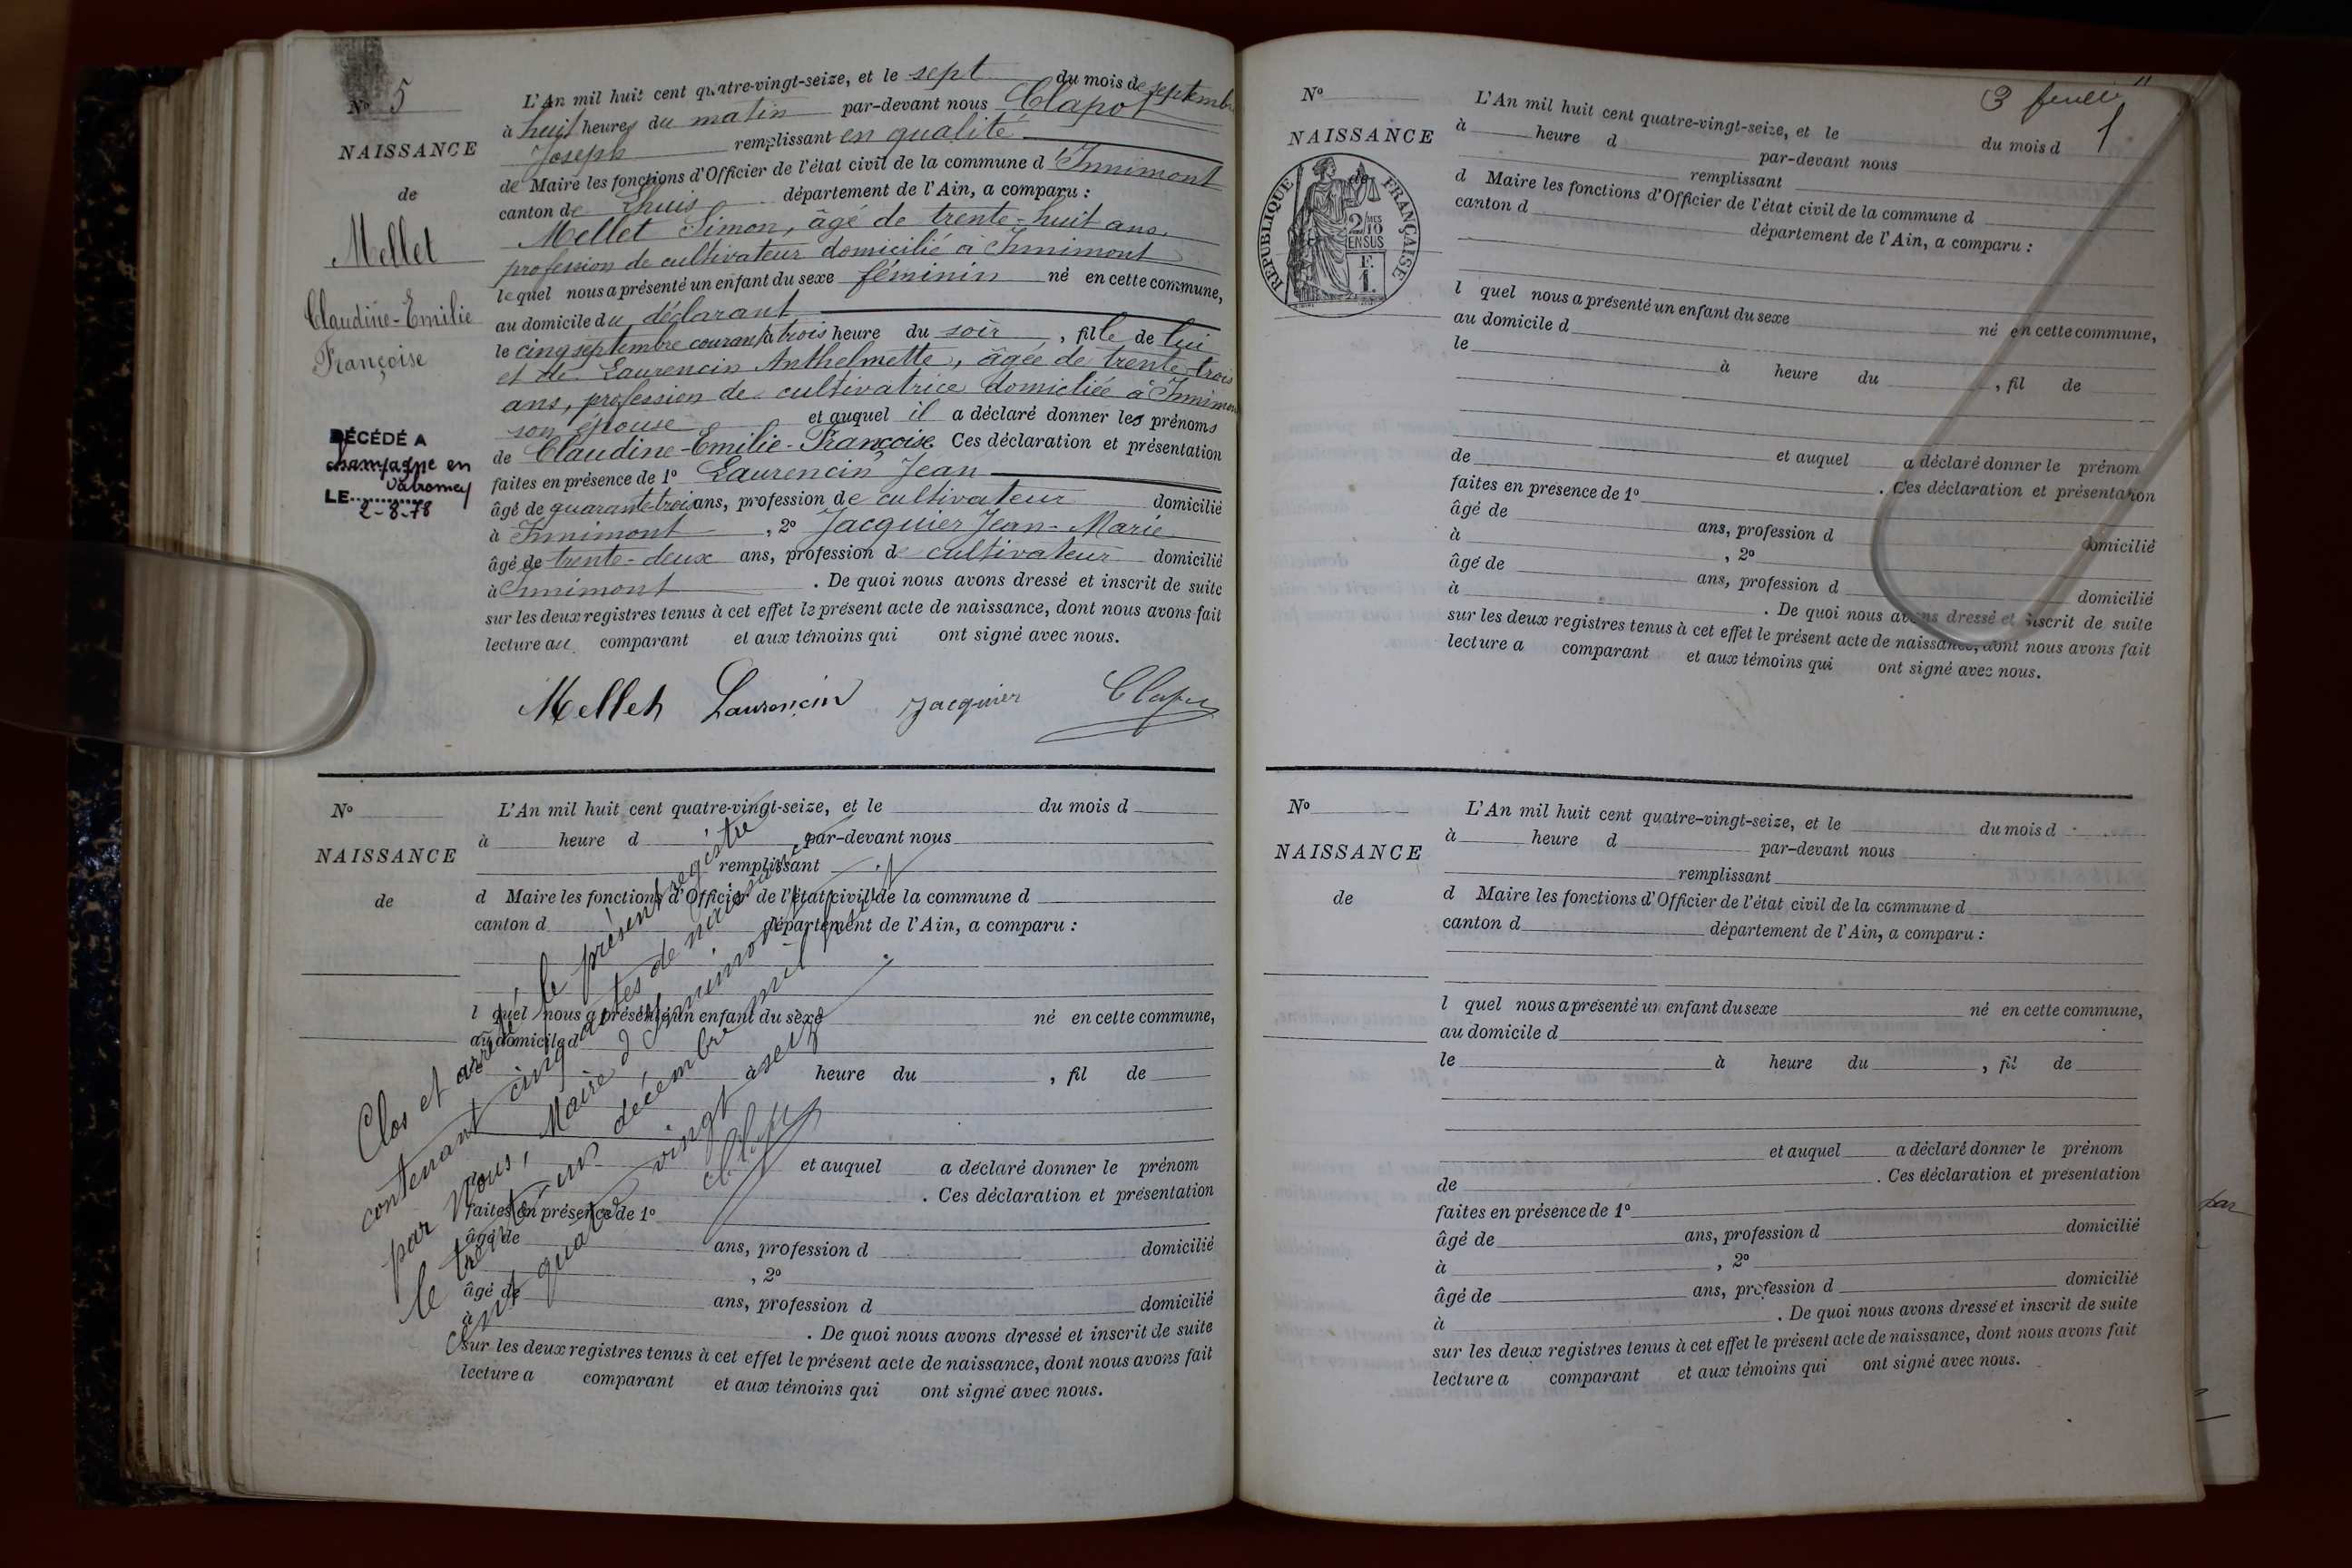 N° 5
NAISSANCE
de
Mellet
Claudine-Emilie
Françoise
DÉCÉDÉ A
Champagne en
Valromey
LE
2-8-78
L'An mil huit cent quatre-vingt-seize, et le sept du mois de septembre
à huit heures du matin par-devant nous Clapot
Joseph remplissant en qualité
de Maire les fonctions d'Officier de l'état civil de la commune d'Innimont
canton de Lhuis département de l'Ain, a comparu :
Mellet Simon, âgé de trente-huit ans
profession de cultivateur domicilié à Innimont
lequel nous a présenté un enfant du sexe féminin né en cette commune,
au domicile du déclarant
le cinq septembre courant à trois heure du soir, fille de lui
et de Laurencin Anthelmette, âgée de trente-trois
ans, profession de cultivatrice domiciliée à Innimont
son épouse et auquel il a déclaré donner les prénoms
de Claudine-Emilie-Françoise Ces déclaration et présentation
faites en présence de 1° Laurencin Jean
âgé de quarante-trois ans, profession de cultivateur domicilié
à Innimont, 2° Jacquier Jean-Marie
âgé de trente-deux ans, profession de cultivateur domicilié
à Innimont. De quoi nous avons dressé et inscrit de suite
sur les deux registres tenus à cet effet le présent acte de naissance, dont nous avons fait
lecture au comparant et aux témoins qui ont signé avec nous.
Mellet Laurencin Jacquier Clapot
N°
NAISSANCE
de
L'An mil huit cent quatre-vingt-seize, et le du mois d
à heure d par-devant nous
remplissant
d Maire les fonctions d'Officier de l'état civil de la commune d
canton d département de l'Ain, a comparu :
l quel nous a présenté un enfant du sexe né en cette commune,
au domicile d
à heure du , fil de
et auquel a déclaré donner le prénom
de . Ces déclaration et présentation
faites en présence de 1°
âgé de ans, profession d domicilié
, 2°
âgé de ans, profession d domicilié
à . De quoi nous avons dressé et inscrit de suite
sur les deux registres tenus à cet effet le présent acte de naissance, dont nous avons fait
lecture a comparant et aux témoins qui ont signé avec nous.
Clos et arrêté le présent registre
contenant cinq actes de naissance
par Nous, Maire d'Innimont
le trente-un décembre mil huit
cent quatre vingt seize.
Clapot
3 feuille
N°
NAISSANCE
de
RÉPUBLIQUE FRANÇAISE
2/10
EN SUS
F.
1.
L'An mil huit cent quatre-vingt-seize, et le du mois d
à heure d par-devant nous
remplissant
d Maire les fonctions d'Officier de l'état civil de la commune d
canton d département de l'Ain, a comparu :
l quel nous a présenté un enfant du sexe né en cette commune,
au domicile d
le à heure du , fil de
et auquel a déclaré donner le prénom
de . Ces déclaration et présentation
faites en présence de 1°
âgé de ans, profession d domicilié
à , 2°
âgé de ans, profession d domicilié
à . De quoi nous avons dressé et inscrit de suite
sur les deux registres tenus à cet effet le présent acte de naissance, dont nous avons fait
lecture a comparant et aux témoins qui ont signé avec nous.
N°
NAISSANCE
de
L'An mil huit cent quatre-vingt-seize, et le du mois d
à heure d par-devant nous
remplissant
d Maire les fonctions d'Officier de l'état civil de la commune d
canton d département de l'Ain, a comparu :
l quel nous a présenté un enfant du sexe né en cette commune,
au domicile d
le à heure du , fil de
et auquel a déclaré donner le prénom
de . Ces déclaration et présentation
faites en présence de 1°
âgé de ans, profession d domicilié
à , 2°
âgé de ans, profession d domicilié
à . De quoi nous avons dressé et inscrit de suite
sur les deux registres tenus à cet effet le présent acte de naissance, dont nous avons fait
lecture a comparant et aux témoins qui ont signé avec nous.